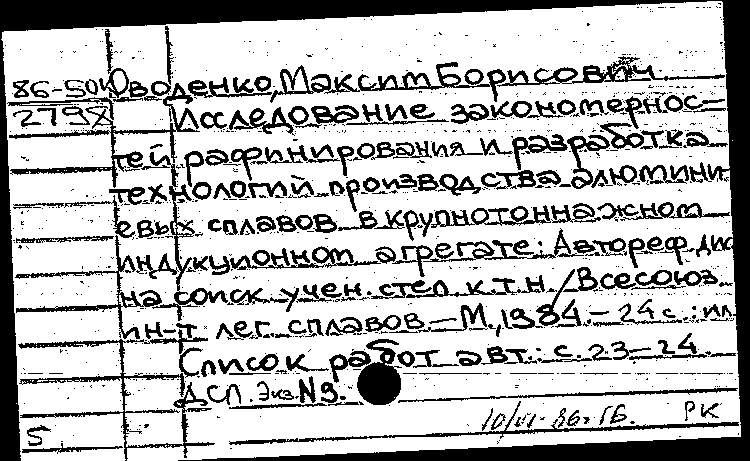 86-50к Оводенко, Максим Борисович
2798 Исследование закономернос-
тей рафинирования и разработка
технологий производства алюмини-
евых сплавов в крупнотоннажном
индукционном агрегате: Автореф. дис
на соиск. учен. степ. к.т.н./Всесоюз.
ин-т лег. сплавов.—М., 1984.—24 с.: ил
Список работ авт.: с. 23—24.
ДСП. Экз N9.
5 10/VI-86г. РК